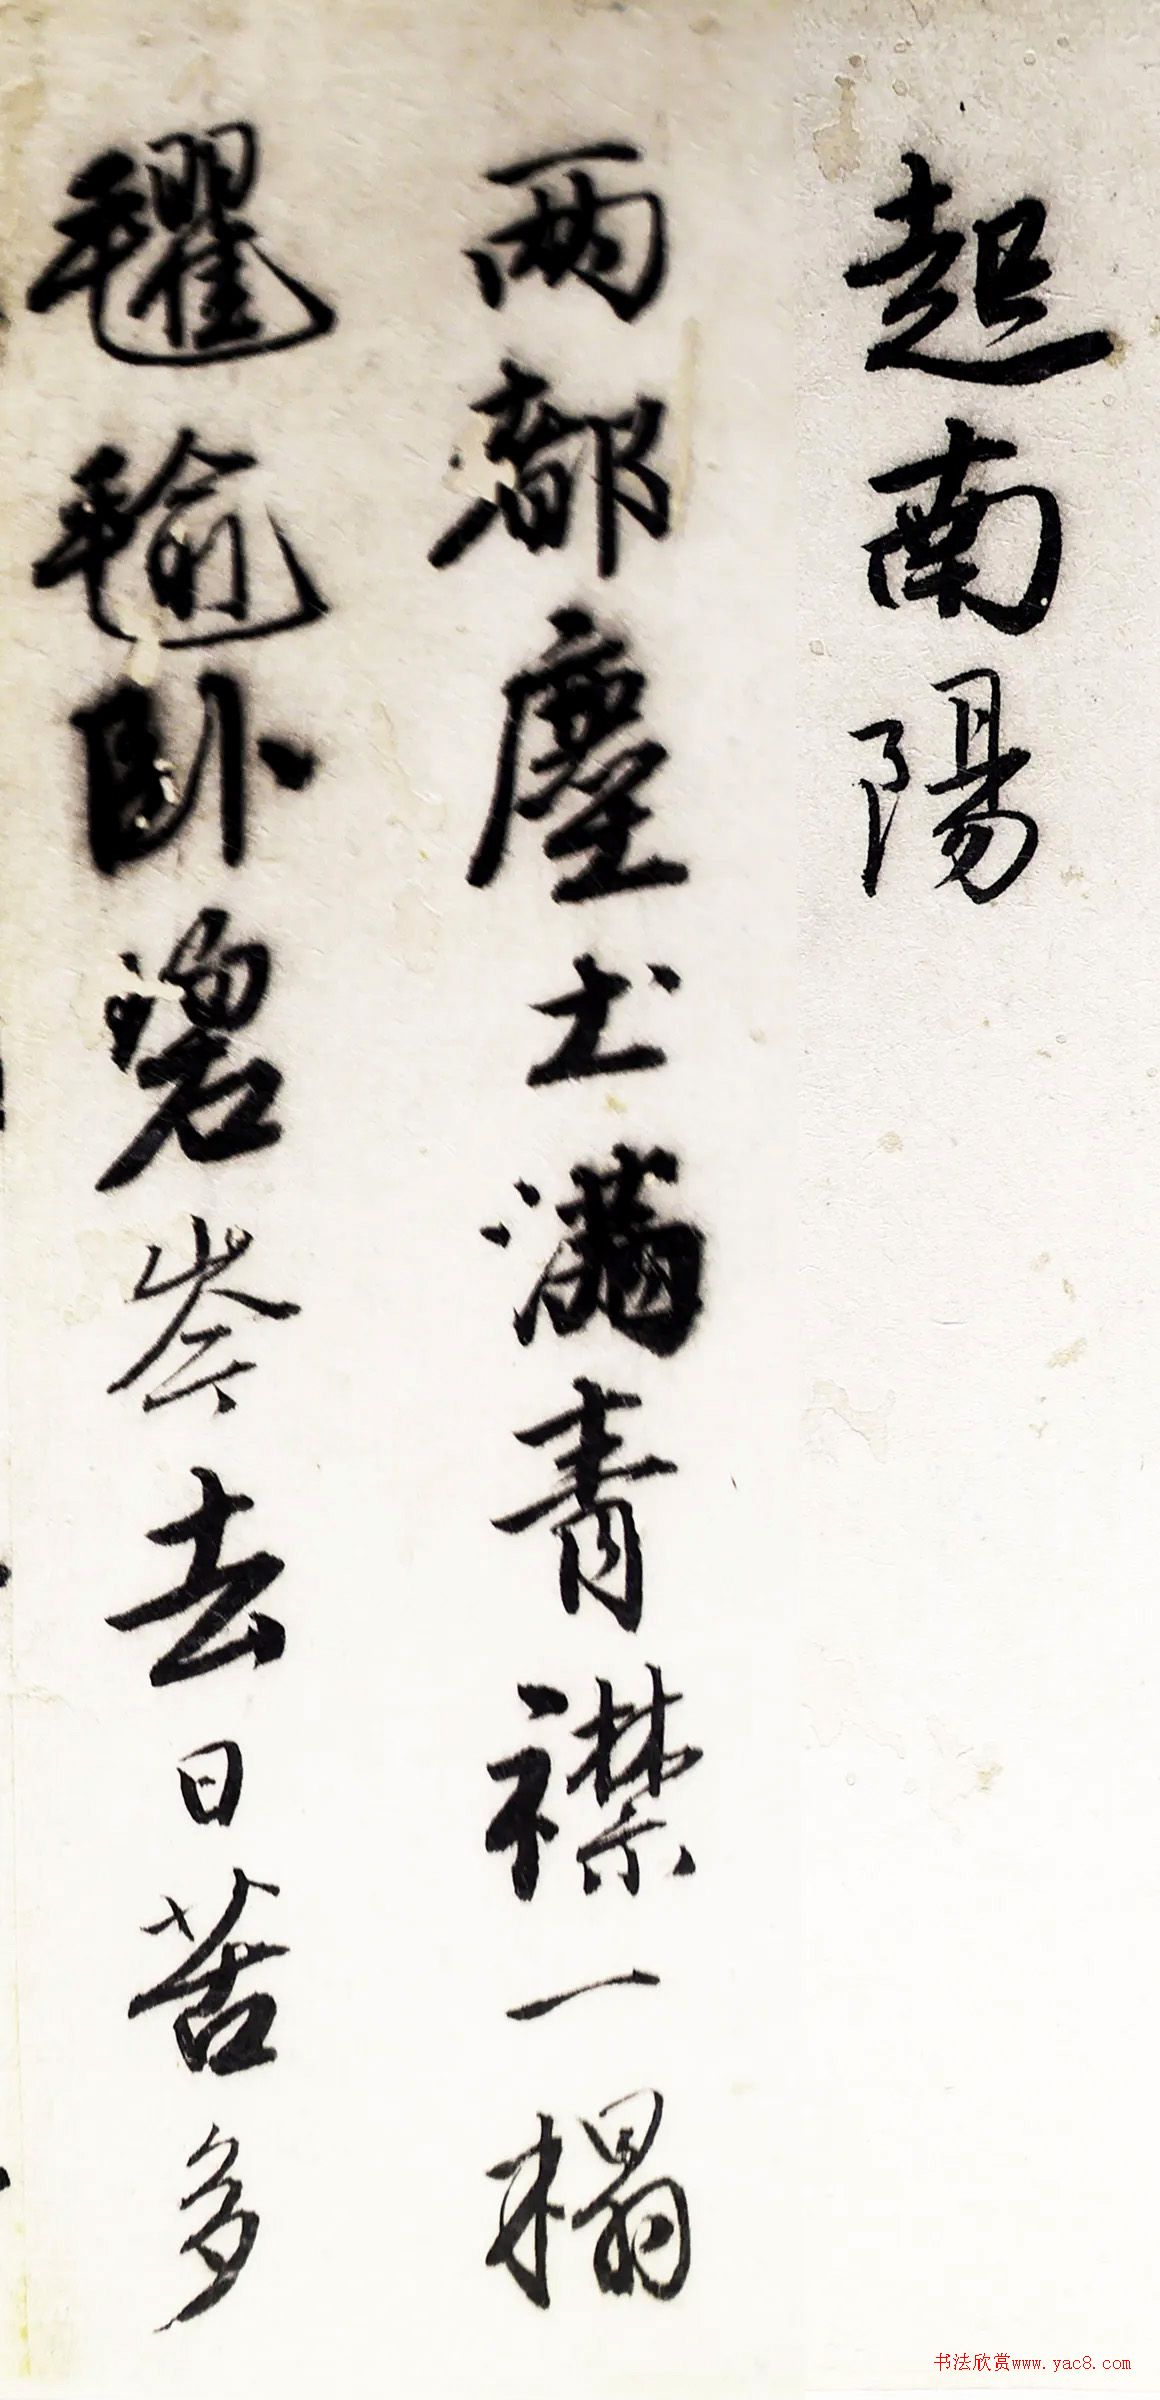 起南陽
兩都塵土滿青襟一榻
氍毹卧碧岑去日苦多
书法欣赏www.yac8.com